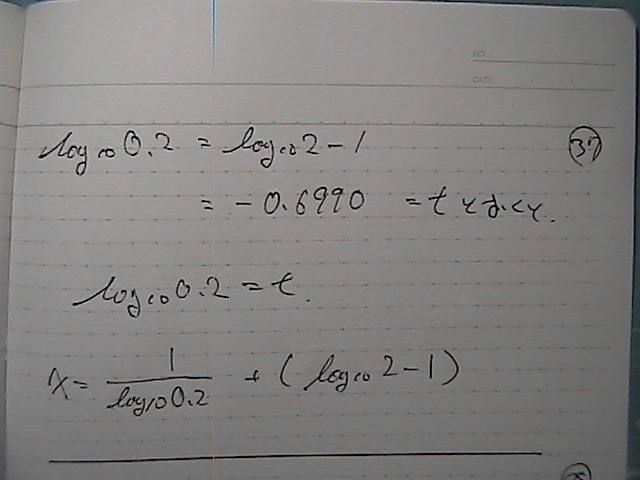 NO.
DATE
log₁₀0.2 = log₁₀2-1 ㊲
= -0.6990 = t とおくと.
log₁₀0.2 = t.
x = 1/log₁₀0.2 + (log₁₀2-1)